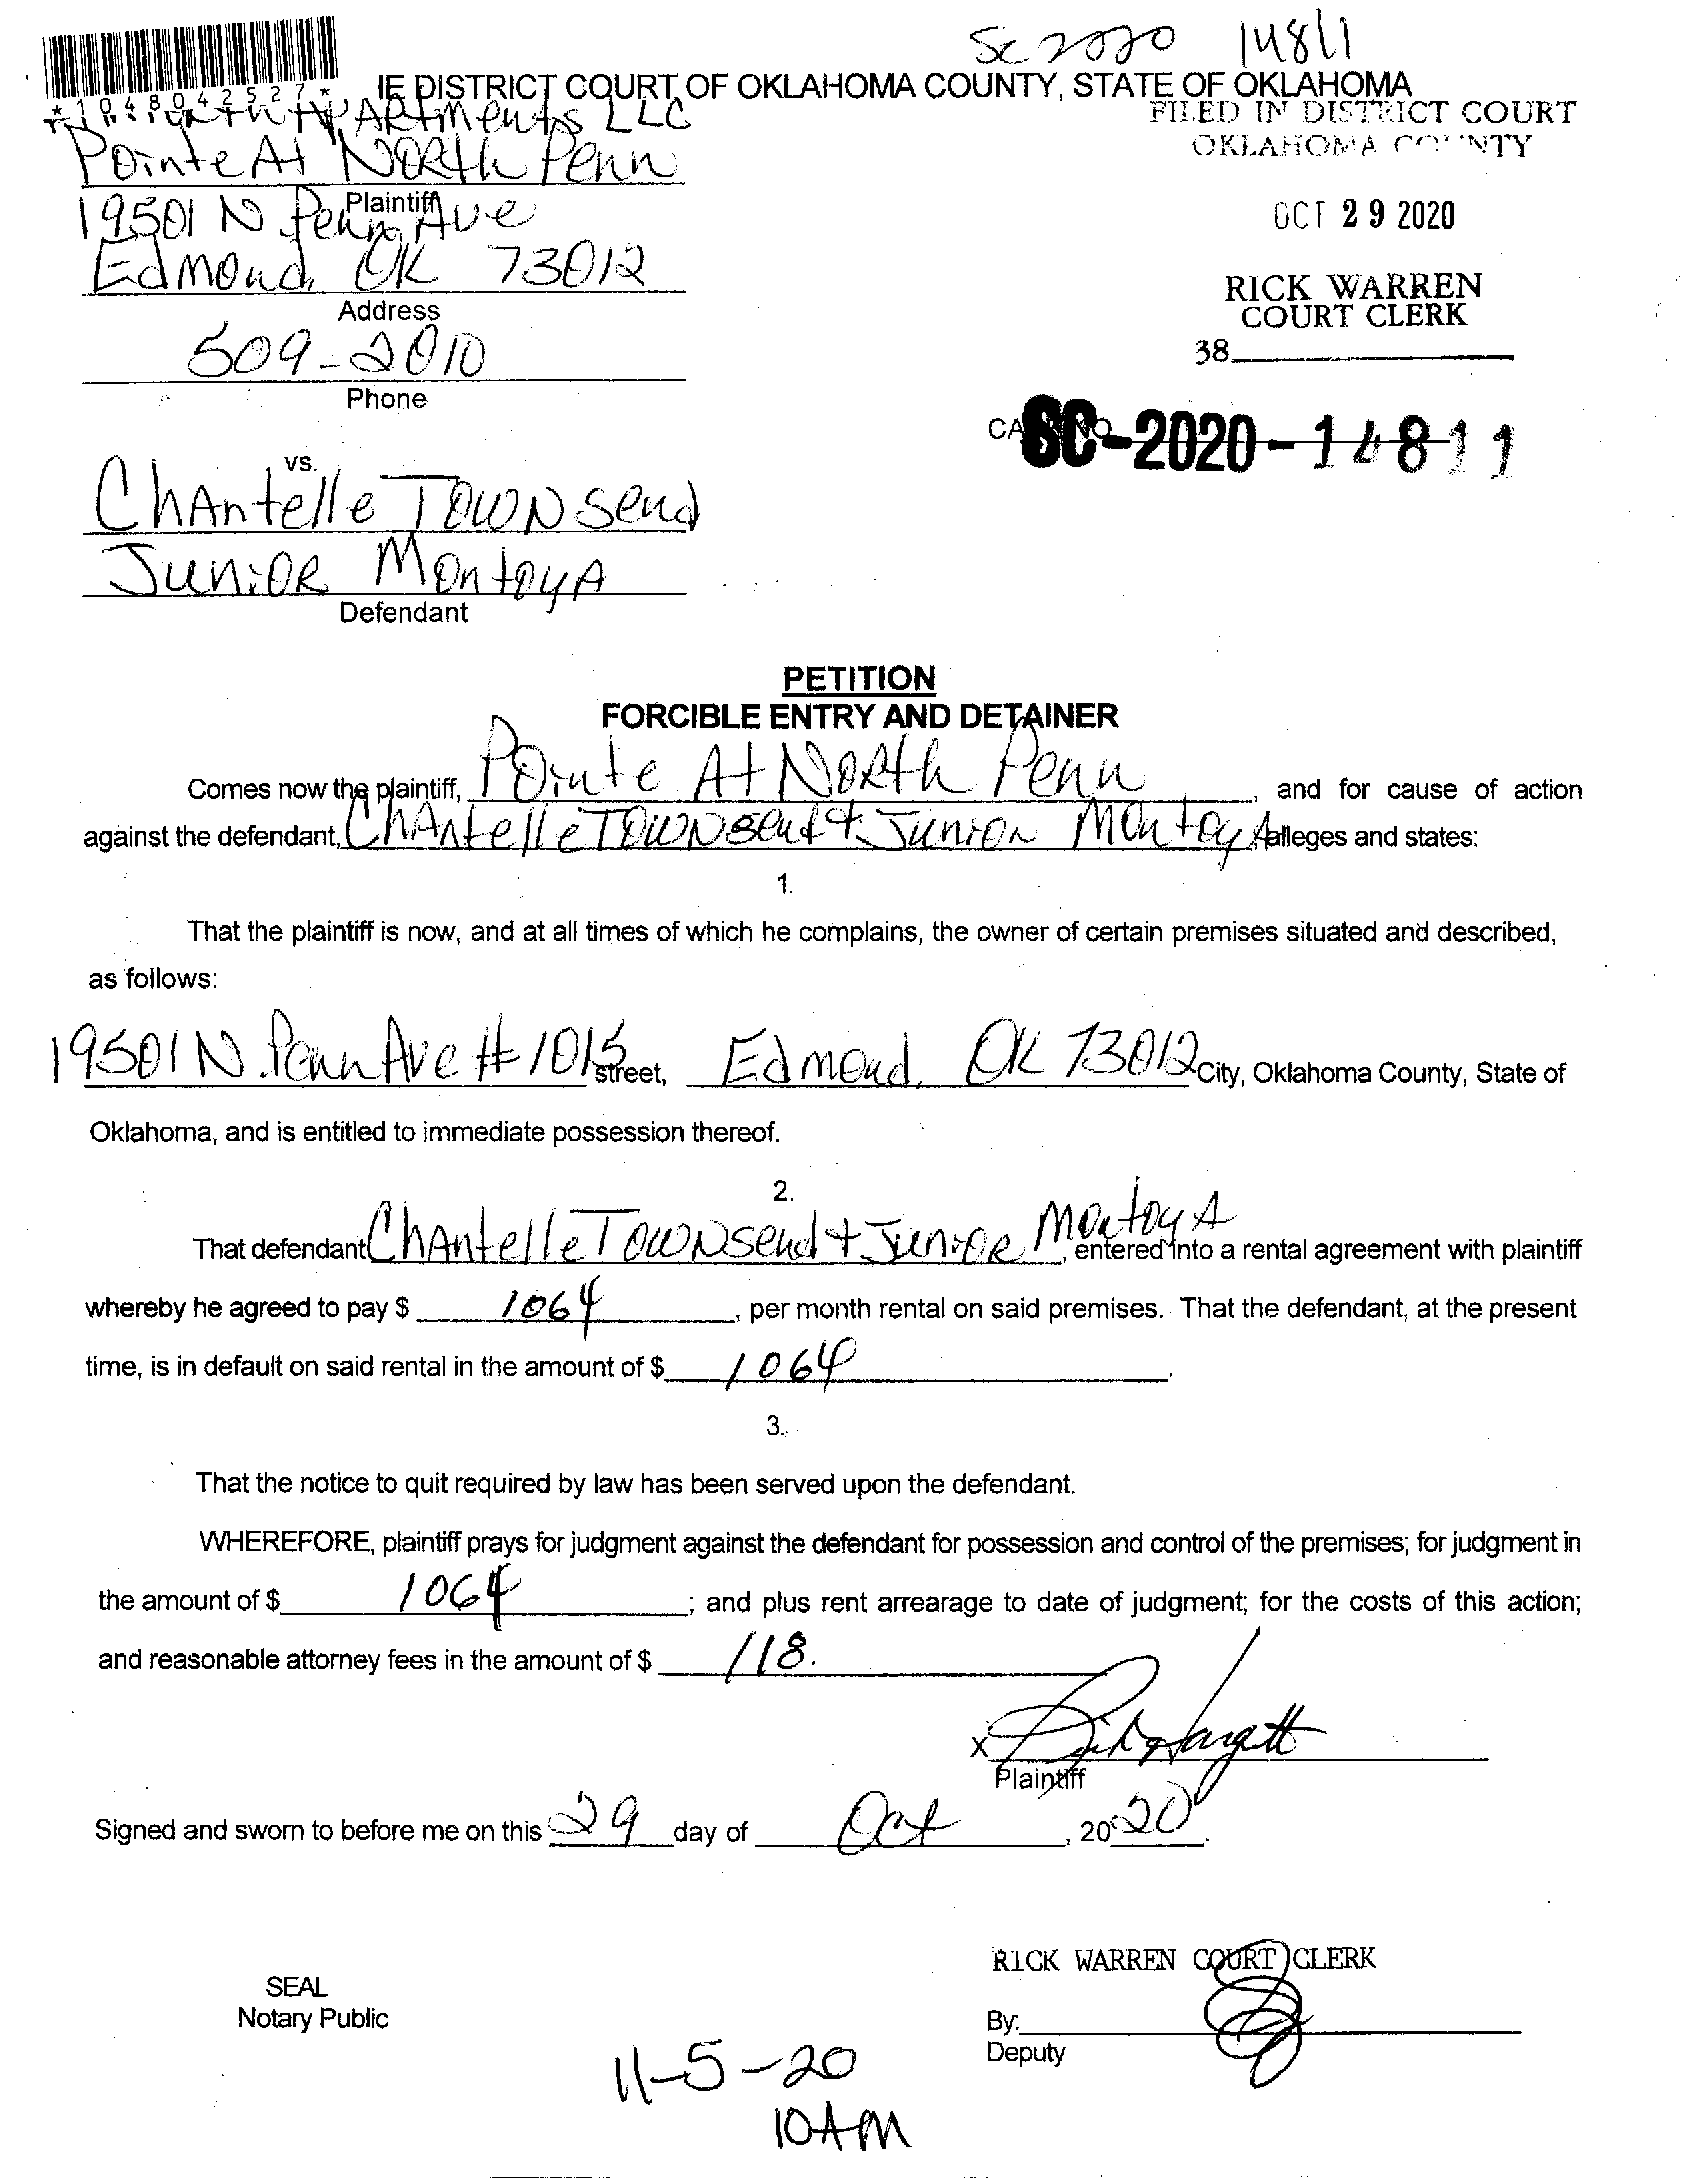 SC 2020 14811
*1048042527*
IE DISTRICT COURT OF OKLAHOMA COUNTY, STATE OF OKLAHOMA
Apartments LLC
Pointe At North Penn
Plaintiff
19501 N Penn Ave
Edmond, OK 73012
Address
509-2010
Phone
FILED IN DISTRICT COURT
OKLAHOMA COUNTY
OCT 29 2020
RICK WARREN
COURT CLERK
38
SC-2020-14811
vs.
Chantelle Townsend
Junior Montoya
Defendant
PETITION
FORCIBLE ENTRY AND DETAINER
Comes now the plaintiff, Pointe At North Penn, and for cause of action
against the defendant, Chantelle Townsend & Junior Montoya alleges and states:
1.
That the plaintiff is now, and at all times of which he complains, the owner of certain premises situated and described,
as follows:
19501 N. Penn Ave # 1015 street, Edmond, OK 73012 City, Oklahoma County, State of
Oklahoma, and is entitled to immediate possession thereof.
2.
That defendant Chantelle Townsend + Junior Montoya, entered into a rental agreement with plaintiff
whereby he agreed to pay $ 1064, per month rental on said premises. That the defendant, at the present
time, is in default on said rental in the amount of $ 1064.
3.
That the notice to quit required by law has been served upon the defendant.
WHEREFORE, plaintiff prays for judgment against the defendant for possession and control of the premises; for judgment in
the amount of $ 1064; and plus rent arrearage to date of judgment; for the costs of this action;
and reasonable attorney fees in the amount of $ 118.
X
Plaintiff
Signed and sworn to before me on this 29 day of Oct, 2020.
RICK WARREN COURT CLERK
SEAL
Notary Public
By:
Deputy
11-5-20
10AM